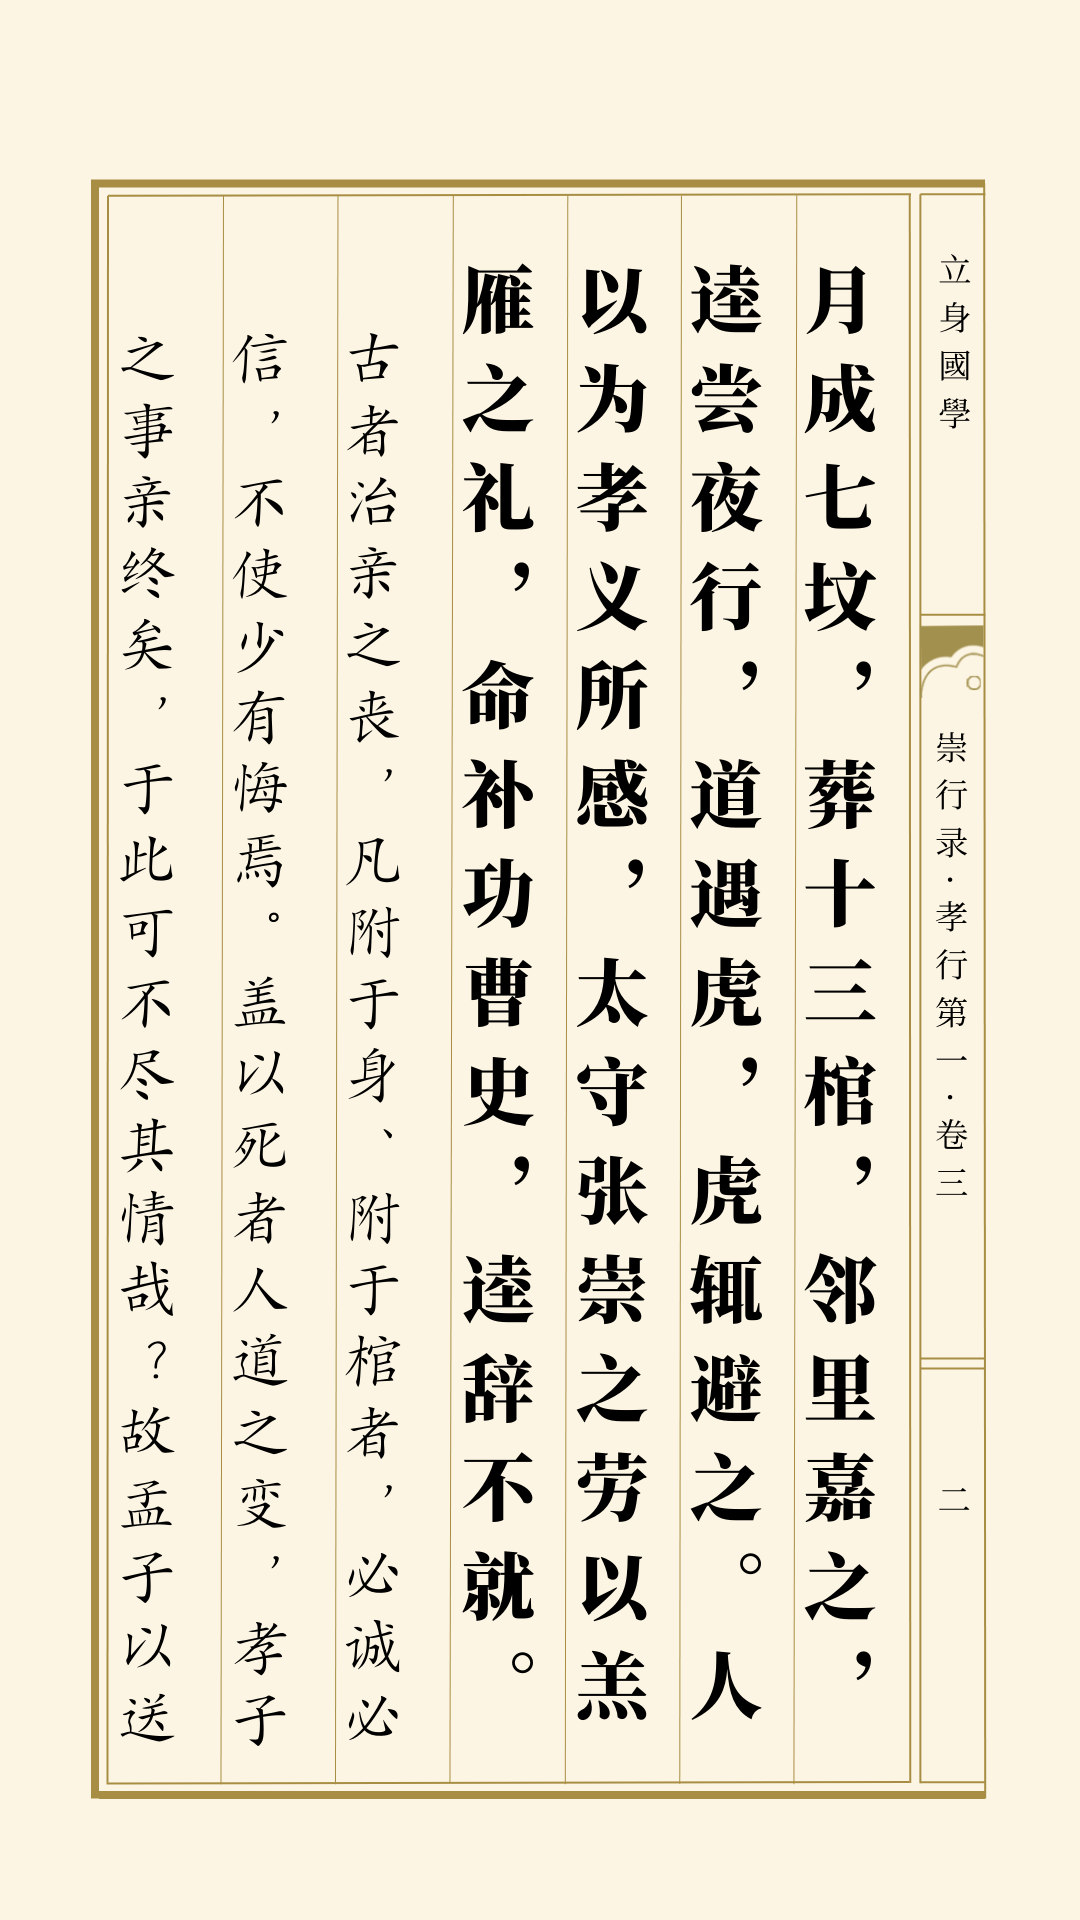 立身國學
崇行录·孝行第一·卷三
二
月成七坟，葬十三棺，邻里嘉之，
逵尝夜行，道遇虎，虎辄避之。人
以为孝义所感，太守张崇之劳以羔
雁之礼，命补功曹史，逵辞不就。
古者治亲之丧，凡附于身、附于棺者，必诚必
信，不使少有悔焉。盖以死者人道之变，孝子
之事亲终矣，于此可不尽其情哉？故孟子以送